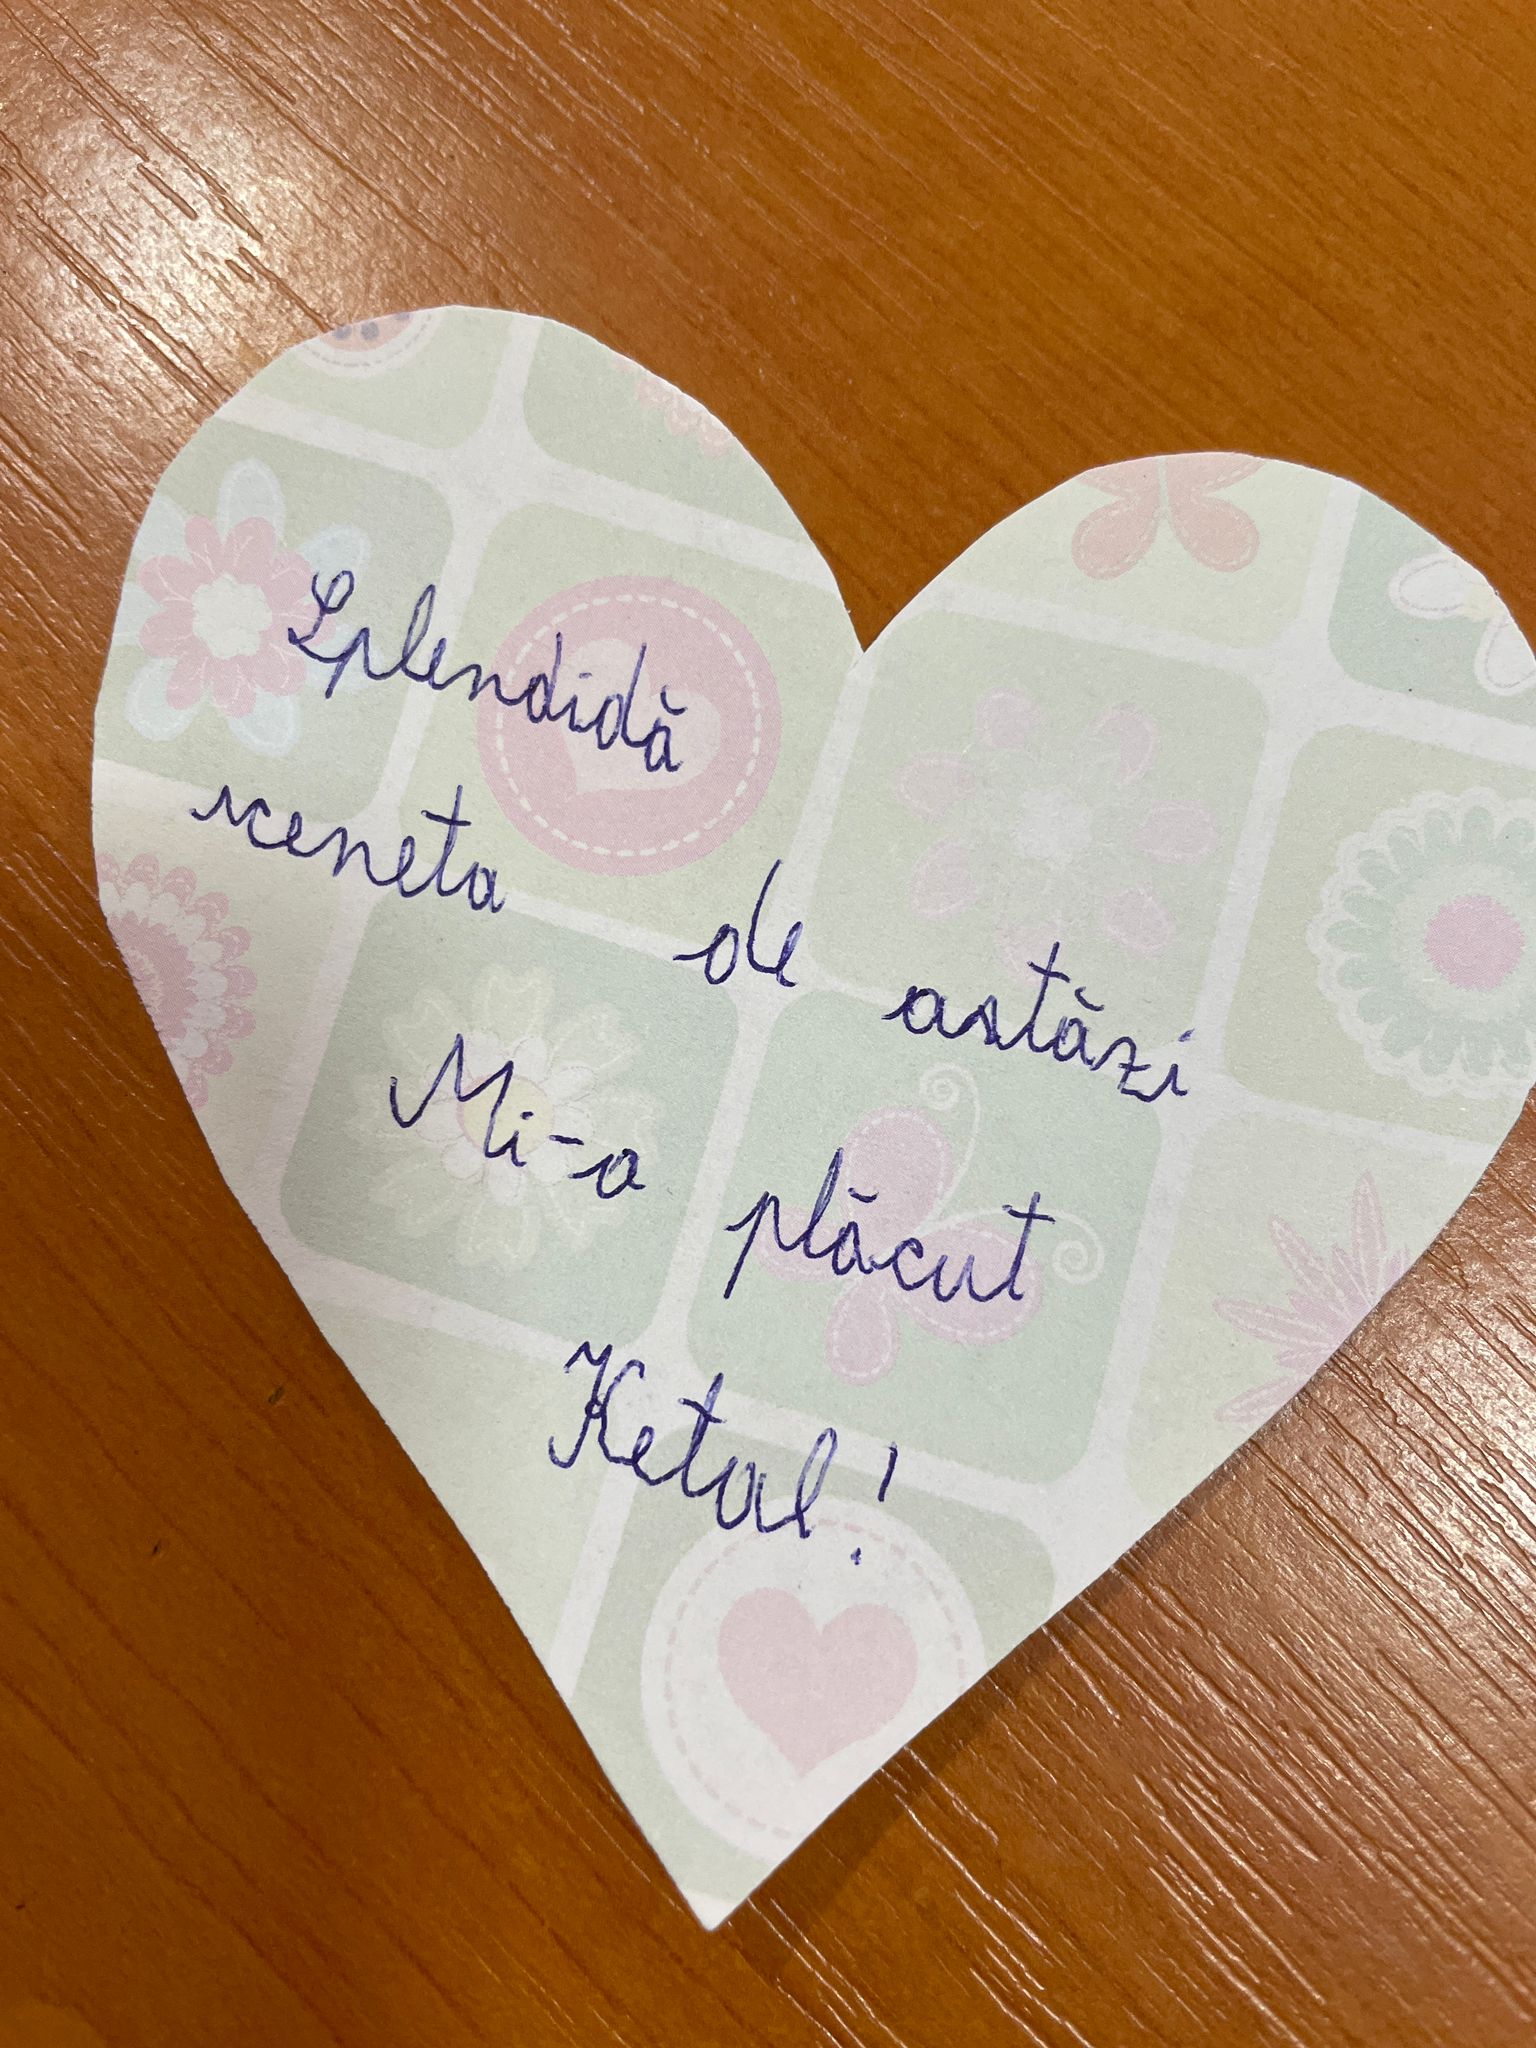 Splendidă
sceneta de astăzi
Mi-a plăcut
Ketal!